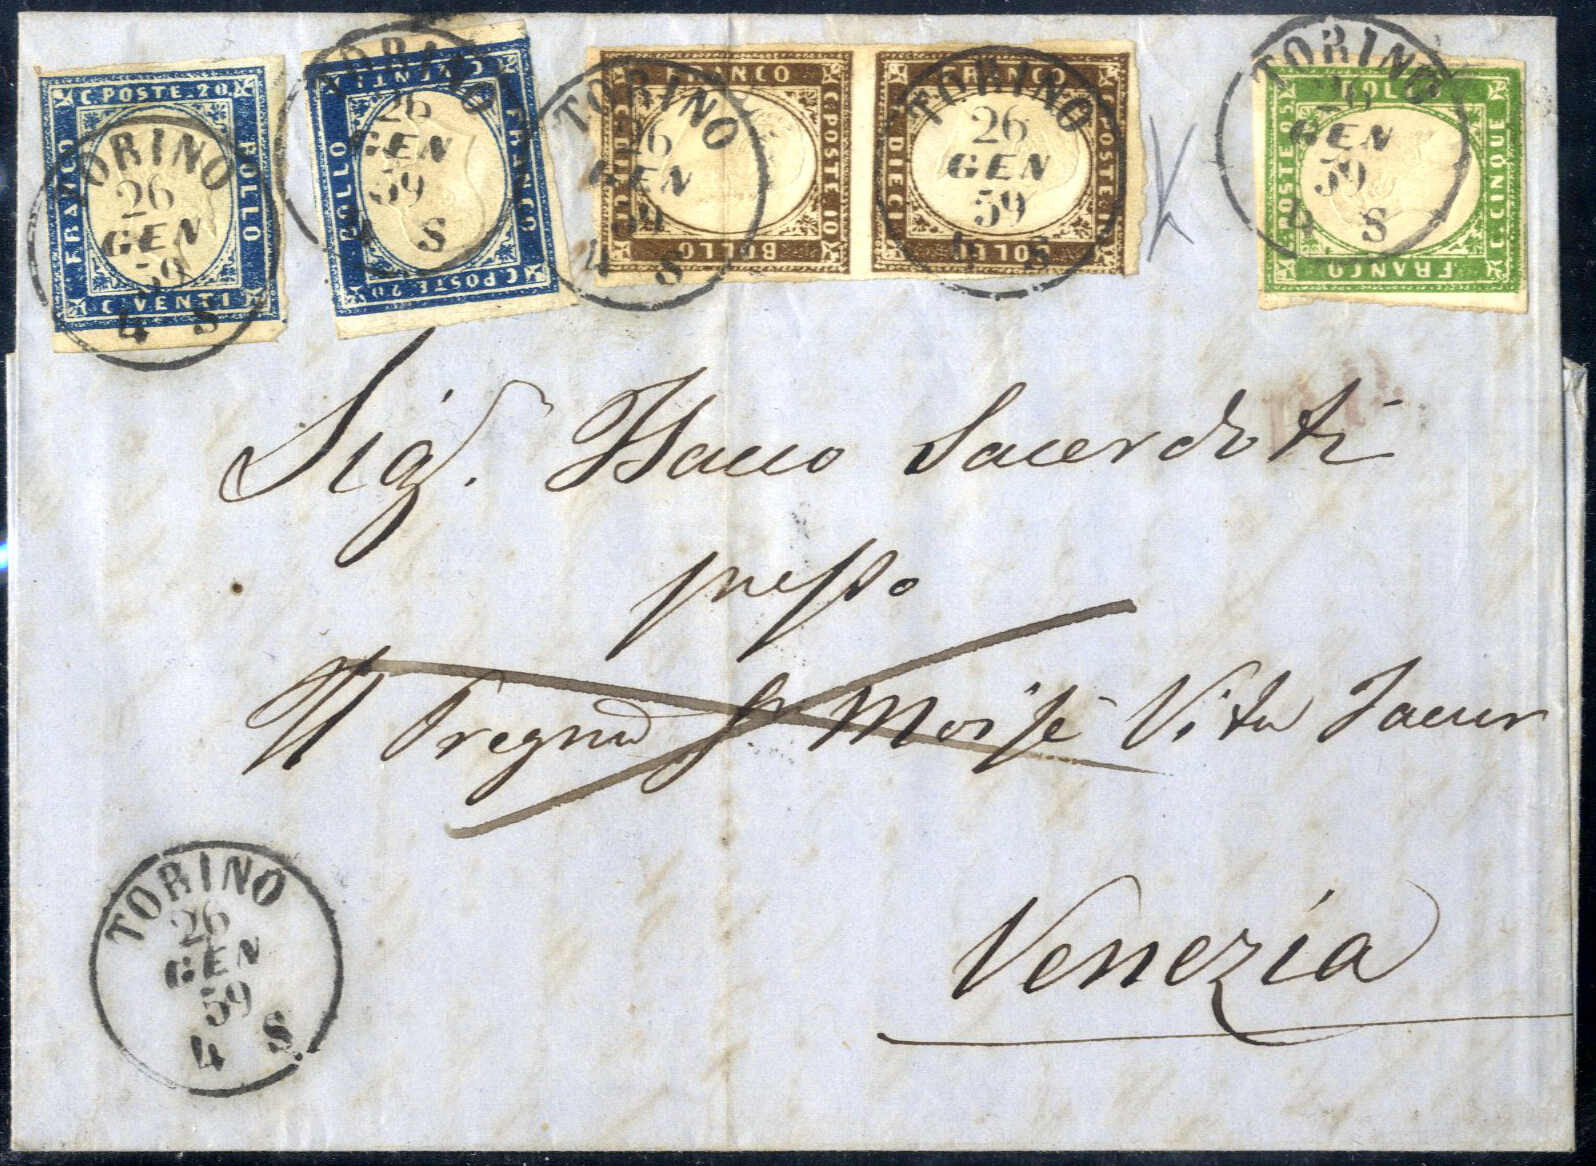 C. POSTE. 20
FRANCO
BOLLO
C. VENTI
TORINO
26
GEN
59
4 S
C. POSTE. 20
FRANCO
BOLLO
C. VENTI
TORINO
26
GEN
59
4 S
FRANCO
C. POSTE. 10
C. DIECI
BOLLO
TORINO
26
GEN
59
4 S
FRANCO
C. POSTE. 10
C. DIECI
BOLLO
TORINO
26
GEN
59
4 S
BOLLO
POSTE 05
C. CINQUE
FRANCO
TORINO
26
GEN
59
4 S
Sig. Isacco Sacerdoti
presso
Moisè Vita Jacur
Venezia
TORINO
26
GEN
59
4 S